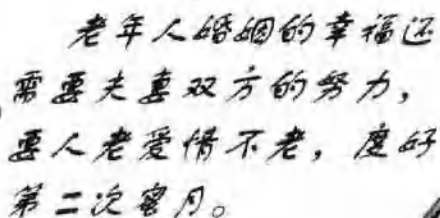 老年人婚姻的幸福还
需要夫妻双方的努力，
要人老爱情不老，度好
第二次蜜月。